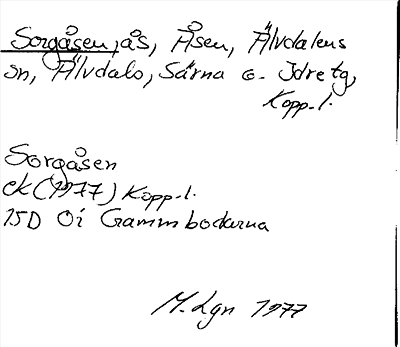 Sorgåsen, ås, Åsen, Älvdalens
sn, Älvdals, Särna o. Idre tg,
Kopp. l.
Sorgåsen
ek (1977) Kopp. l.
15D 0i Gammbodarna
M. Lgn 1977